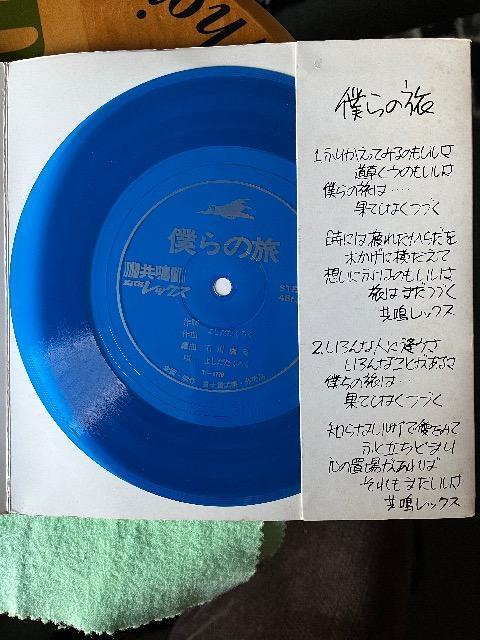 僕らの旅
共鳴
レックス
STE
作詞 よしだたくろう
作曲 よしだたくろう
編曲 石川鷹彦
唄 よしだたくろう
僕らの旅
1.ふりかえってみるのもいいさ
道草くうのもいいさ
僕らの旅は‥‥
果てしなくつづく
時には疲れたからだを
木かげに横たえて
想いにふけるのもいいさ
旅はまだつづく
共鳴レックス
2.いろんな人に逢うさ
いろんなことがあるさ
僕らの旅は‥
果てしなくつづく
知らない町で
ふと立ちどまり
心の置場があれば
それもまたいいさ
共鳴レックス